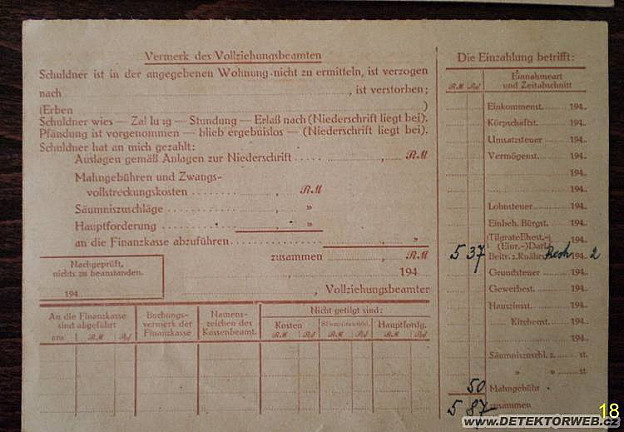 Vermerk des Vollziehungsbeamten
Schuldner ist in der angegebenen Wohnung nicht zu ermitteln, ist verzogen
nach , ist verstorben;
(Erben )
Schuldner wies — Zahlung — Stundung — Erlaß nach (Niederschrift liegt bei).
Pfändung ist vorgenommen — blieb ergebnislos — (Niederschrift liegt bei).
Schuldner hat an mich gezahlt:
Auslagen gemäß Anlagen zur Niederschrift RM
Mahngebühren und Zwangs-
vollstreckungskosten RM
Säumniszuschläge "
Hauptforderung "
an die Finanzkasse abzuführen "
zusammen RM
194
, Vollziehungsbeamter
Nachgeprüft,
nichts zu beanstanden.
194
An die Finanzkasse
sind abgeführt
am RM Rpf
Buchungs-
vermerk der
Finanzkasse
Namens-
zeichen des
Kassenbeamt.
Nicht getilgt sind:
Kosten
RM Rpf
RM Rpf
Hauptfordg.
RM Rpf
Die Einzahlung betrifft:
RM Rpf
Einnahmeart
und Zeitabschnitt
Einkommenst. 194
Körpschaftst. 194
Umsatzsteuer 194
Vermögenst. 194
194
194
Lohnsteuer 194
Einbeh. Bürgst. 194
(Tilgrate Ehest.-)
(Einr.-) Darl. 194
5 37 194 2
Grundsteuer 194
Gewerbest. 194
Hauszinst. 194
Kirchenst. 194
194
Säumniszschl. z. st.
" " st.
50 Mahngebühr
5 87 zusammen
18
www.DETEKTORWEB.cz